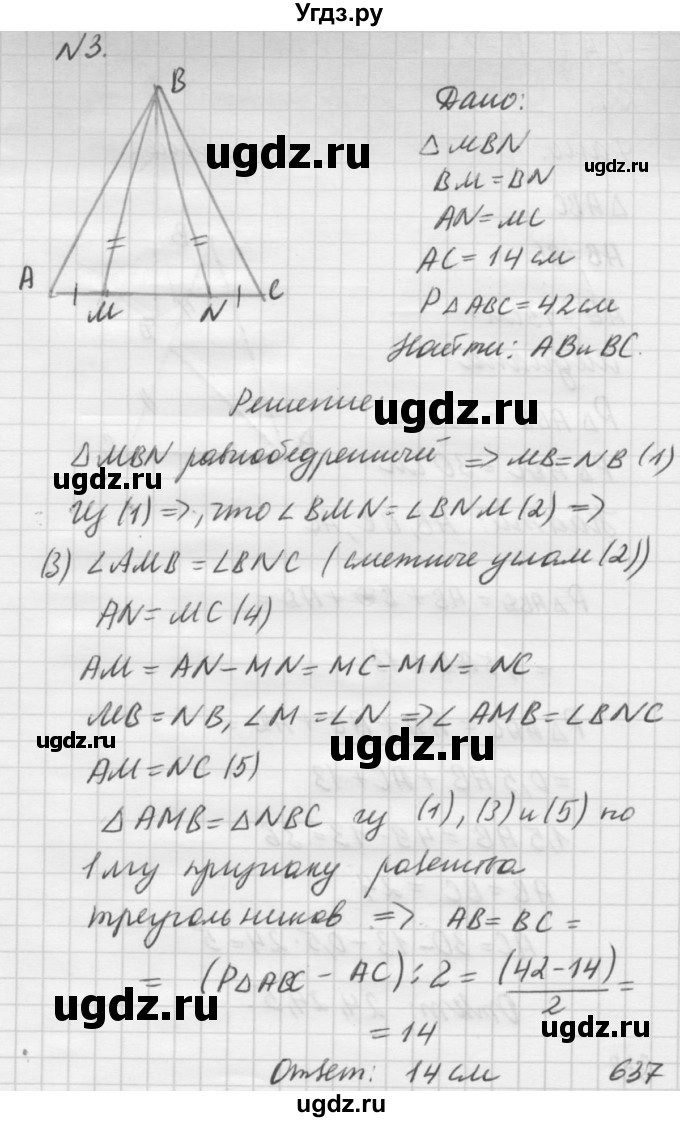 Угдз.ру
N3.
B
A
M
N
C
Дано:
△MBN
BM = BN
AN = MC
AC = 14 см
P△ABC = 42 см
Найти: AB и BC.
Решение:
△MBN равнобедренный => MB = NB (1)
из (1) =>, что ∠BMN = ∠BNM (2) =>
(3) ∠AMB = ∠BNC (сметные углам (2))
AN = MC (4)
AM = AN - MN = MC - MN = NC
MB = NB, ∠M = ∠N => ∠AMB = ∠BNC
AM = NC (5)
△AMB = △NBC из (1), (3) и (5) по
1му признаку равенства
треугольников => AB = BC =
= (P△ABC - AC) : 2 = (42 - 14) / 2 =
= 14
Ответ: 14 см
637
ugdz.ru
ugdz.ru
ugdz.ru
ugdz.ru
ugdz.ru
ugdz.ru
ugdz.ru
ugdz.ru
ugdz.ru